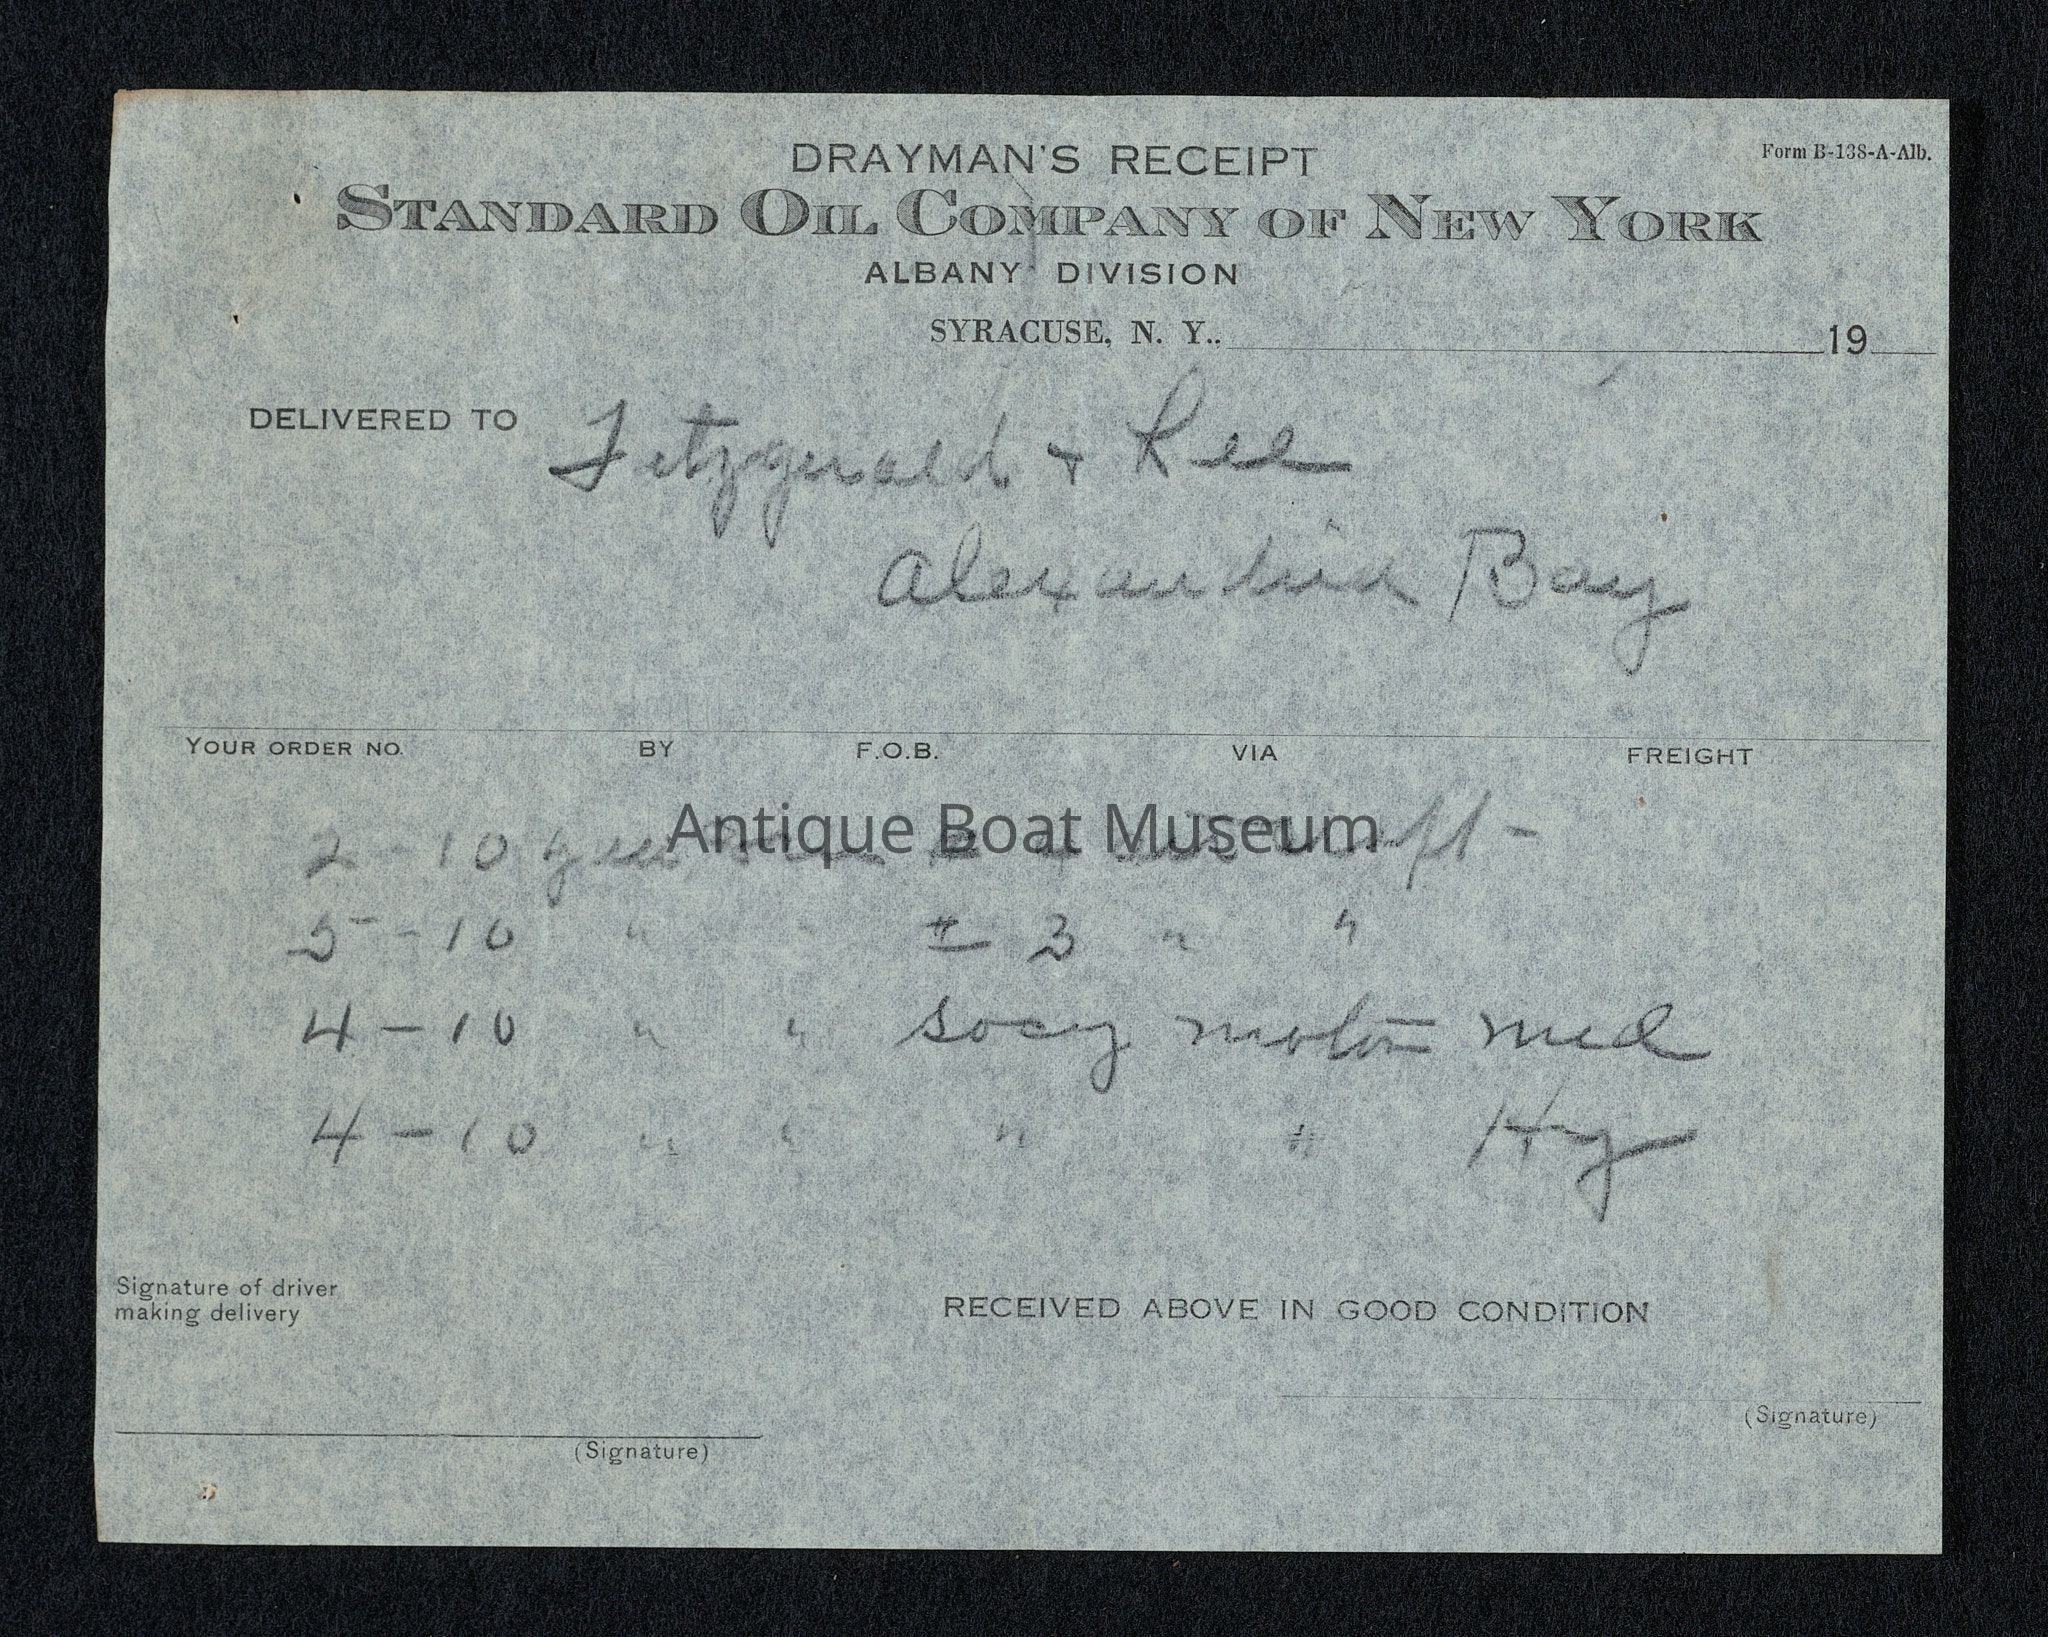 DRAYMAN'S RECEIPT
Form B-138-A-Alb.
STANDARD OIL COMPANY OF NEW YORK
ALBANY DIVISION
SYRACUSE, N. Y., 19
DELIVERED TO Fitzgerald + Lee
Alexandria Bay
YOUR ORDER NO. BY F.O.B. VIA FREIGHT
Antique Boat Museum
2 - 10
5 - 10 " " # 3 " "
4 - 10 " " Socy motor med
4 - 10 " " " " Hy
Signature of driver
making delivery
RECEIVED ABOVE IN GOOD CONDITION
(Signature)
(Signature)